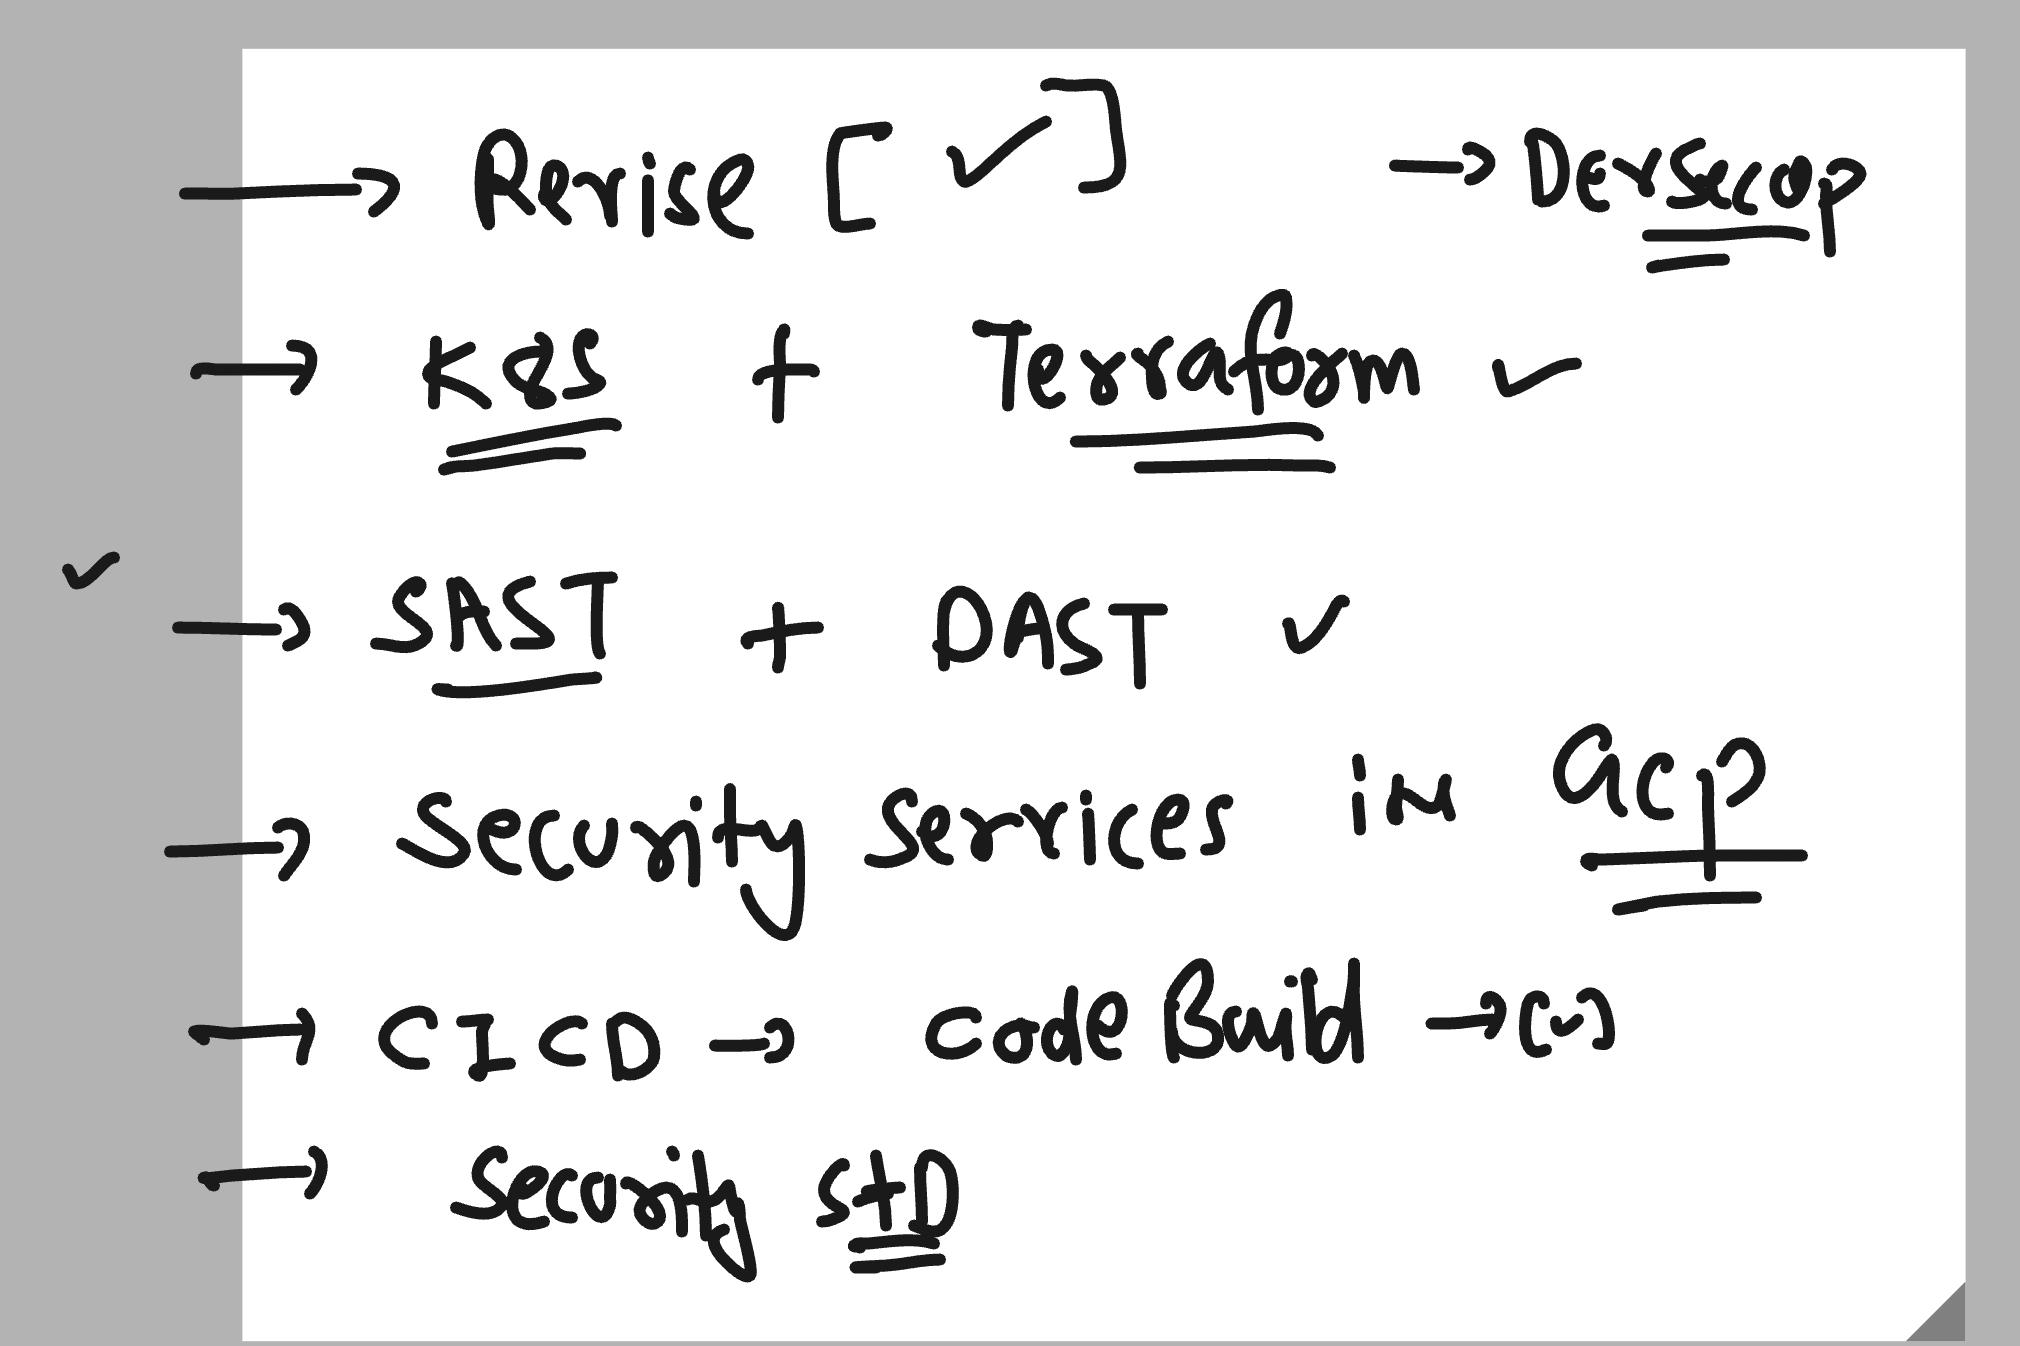 → Revise [ ✓ ] → Devsecop
→ K8S + Terraform ✓
✓ → SAST + DAST ✓
→ Security Services in GCP
→ CICD → Code Build → [✓]
→ Security StD